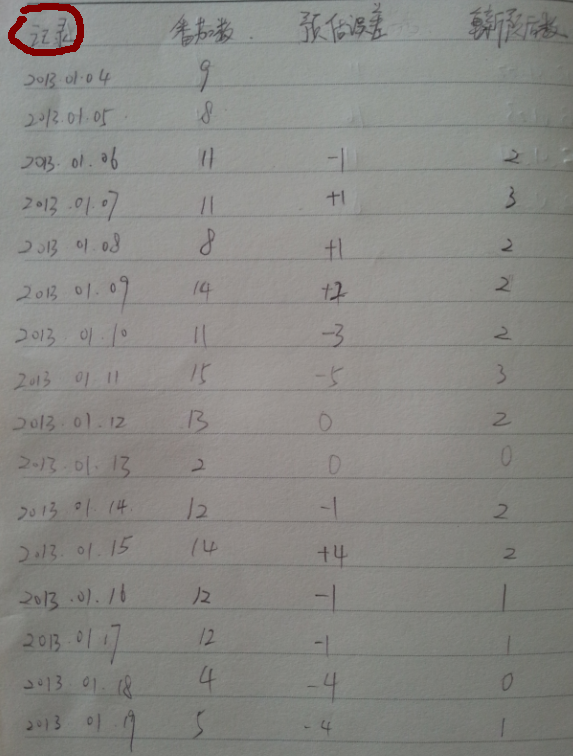 记录 番茄数. 预估误差 重新预估数
2013.01.04 9
2013.01.05 8
2013.01.06 11 -1 2
2013.01.07 11 +1 3
2013 01.08 8 +1 2
2013 01.09 14 +2 2
2013 01.10 11 -3 2
2013 01 11 15 -5 3
2013.01.12 13 0 2
2013.01.13 2 0 0
2013 01.14. 12 -1 2
2013.01.15 14 +4 2
2013.01.16 12 -1 1
2013.01 17 12 -1 1
2013 01.18 4 -4 0
2013 01.19 5 -4 1